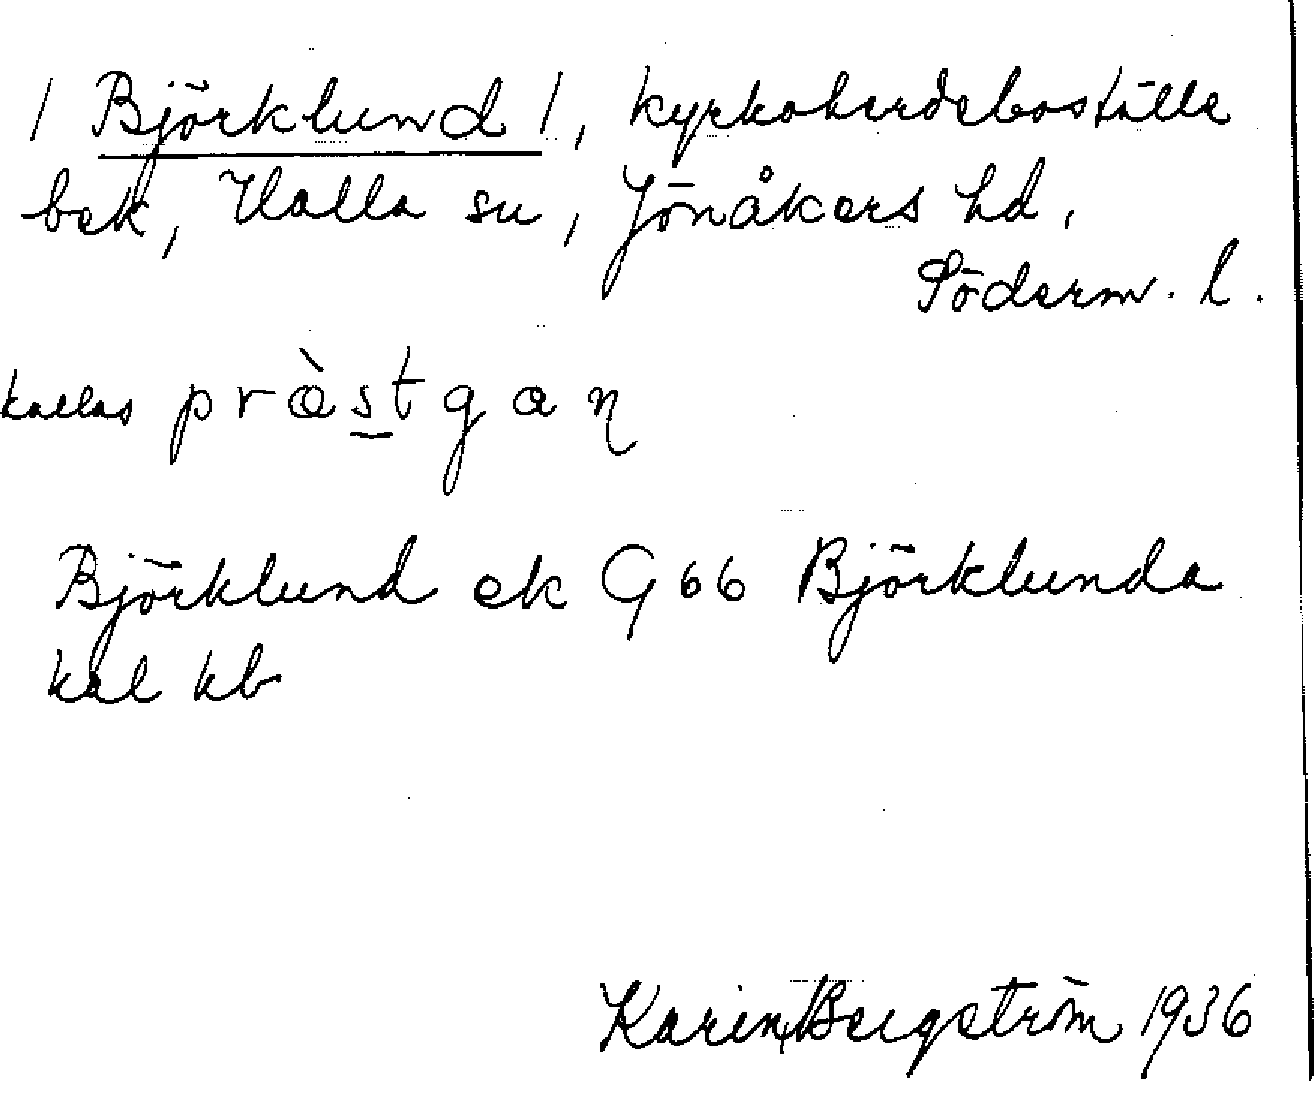 / Björklund /, kyrkoherdeboställe
bek, Halla sn, Jönåkers hd,
Söderm. l.
kallas pràstgan
Björklund ek G 66 Björklunda
kal kb
Karin Bergström 1936